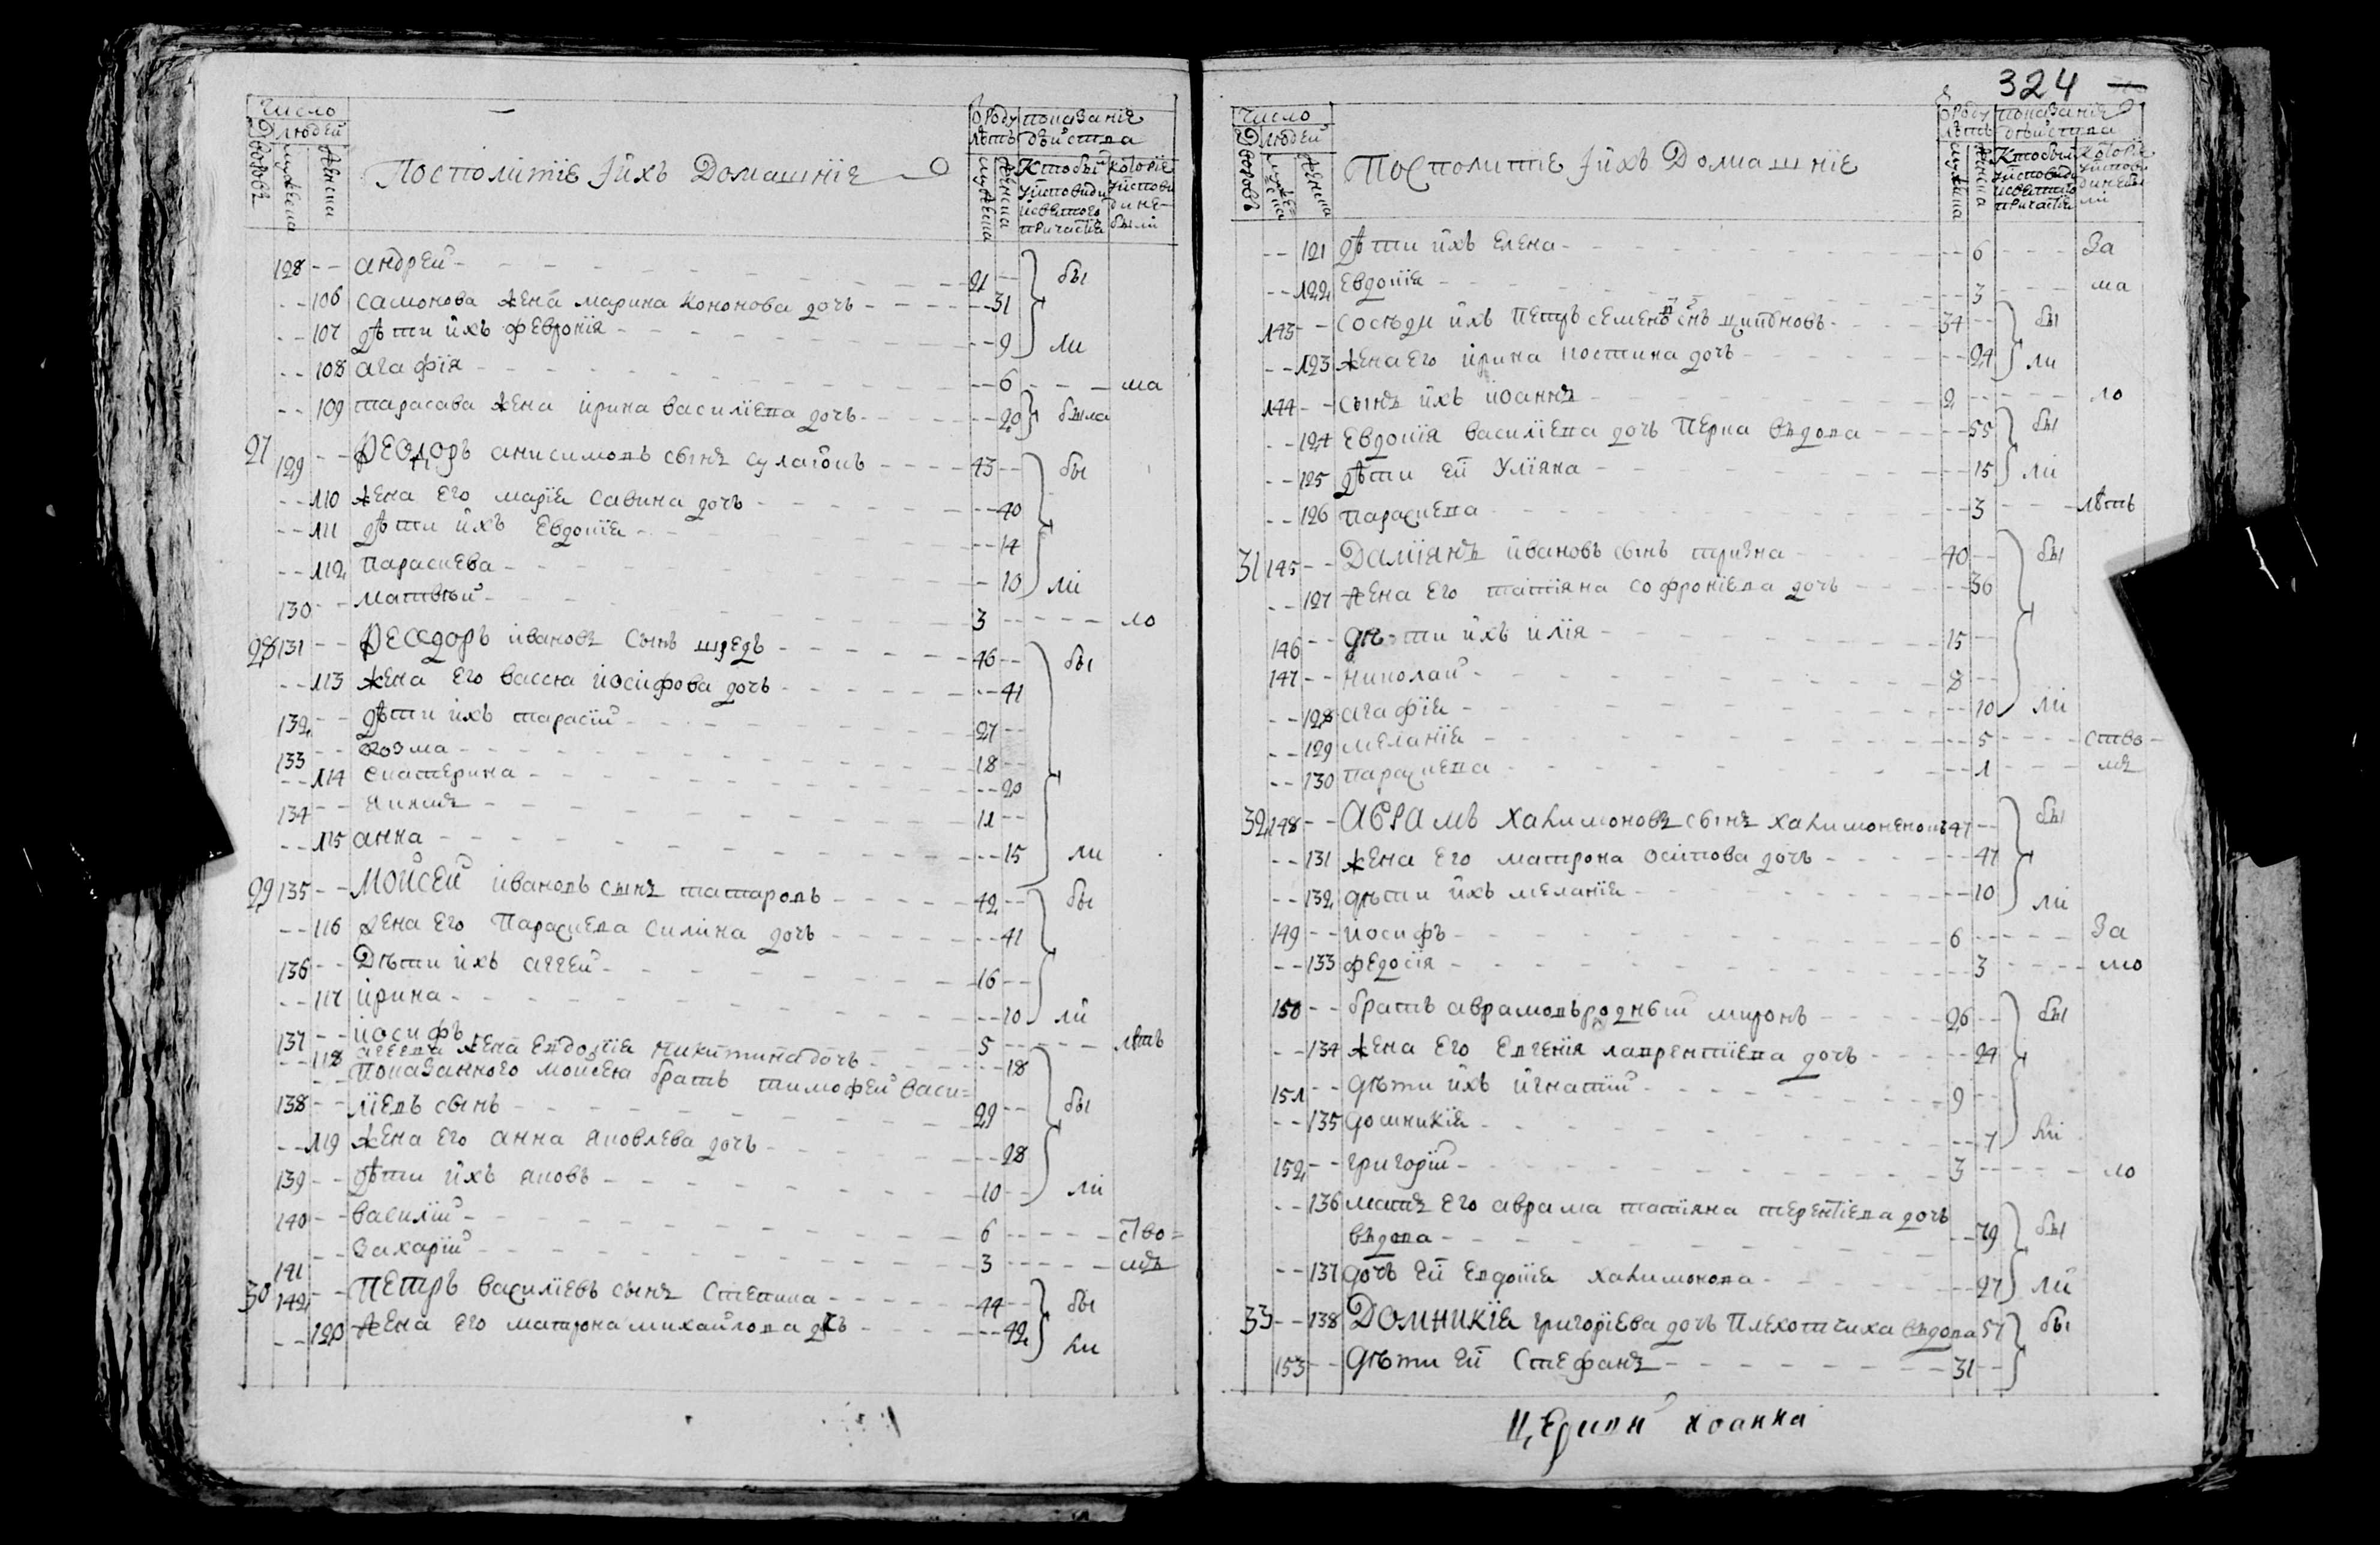 Число
Дворовъ
людей
мужеска
женска
Посполитіе Ійхъ Домашніе
ѿ Роду лѣтъ
мужеска
женска
показанія дѣйства
Кто бы
Уисповиди
исвятого
причастія
которіе
Уиспови
ди не
были
128 андрей 21 бы
106 самонова жена марина кононова дочь 31
107 дѣти йхъ февронія 9 ли
108 агафія 6 ма
109 тарасава жена ирина василіева дочь 20 была
27 129 Ѳеодоръ анисимовъ сынъ 43 бы
110 жена его маріа савина дочь 40
111 дѣти йхъ евдокіа 14
112 параскева 10 ли
130 матвѣй 3 ло
28 131 Ѳеодоръ ивановъ сынъ шведъ 46 бы
113 жена его васса іосифова дочь 41
132 дѣти ихъ тарасій 27
133 козма 18
114 екатерина 20
134 якимъ 11
115 анна 15 ли
29 135 Мойсей ивановъ сынъ татаровъ 42 бы
116 жена его Параскева силина дочь 41
136 Дѣти йхъ аггей 16
117 ирина 10 ли
137 іосифъ 5 лѣтъ
118 аггеева жена евдокіа никитина дочь 18
показанного мойсея братъ тимофей васи=
138 ліевъ сынъ 29 бы
119 жена его анна яковлева дочь 28
139 дѣти йхъ яковъ 10 ли
140 василій 6 ство=
141 захарій 3 мъ
30 142 Петръ василіевъ сынъ Степика 44 бы
120 жена его матрона михайлова дочъ 42 ли
324
Число
Дворовъ
людей
мужеска
женска
Посполитіе Ійхъ Домашніе
ѿ Роду лѣтъ
мужеска
женска
показанія дѣйства
Кто бы
Уисповиди
исвятого
причастія
которіе
Уиспов
ди не бы
ли
121 дѣти йхъ Елена 6 За
122 Евдокіа 3 ма
143 сосѣди йхъ Петръ семеновъ снъ 34 бы
123 жена его ирина костина дочь 24 ли
144 сынъ йхъ иоаннъ 2 ло
124 Евдокія василіева дочь Перка вьдова 55 бы
125 дѣти ей Уліяна 15 ли
126 параскева 3 лѣтъ
31 145 Даміянъ ивановъ сынъ 40 бы
127 жена его татіяна софроніева дочь 36
146 дѣ-ти йхъ илія 15
147 николай 8
128 агафіа 10 ли
129 меланіа 5 ство-
130 параскева 1 мъ
32 148 Аврамъ халимоновъ сынъ халимоненокъ 47 бы
131 жена его матрона осипова дочь 47
132 дѣти йхъ меланіа 10 ли
149 иосифъ 6 За
133 федосія 3 мо
150 братъ аврамовъ родный миронъ 26 бы
134 жена его Евгенія лаврентіева дочь 24
151 дѣти йхъ игнатій 9
135 домникіа 7 ли
152 григорій 3 ло
136 мать его аврама татіяна терентіева дочь
вьдова 79 бы
137 дочь ей евдокіа халимонова 27 ли
33 138 Домникіа григоріева дочь Плехотчиха вьдова 57 бы
153 дѣти ей Стефанъ 31
Церкви Иоанна